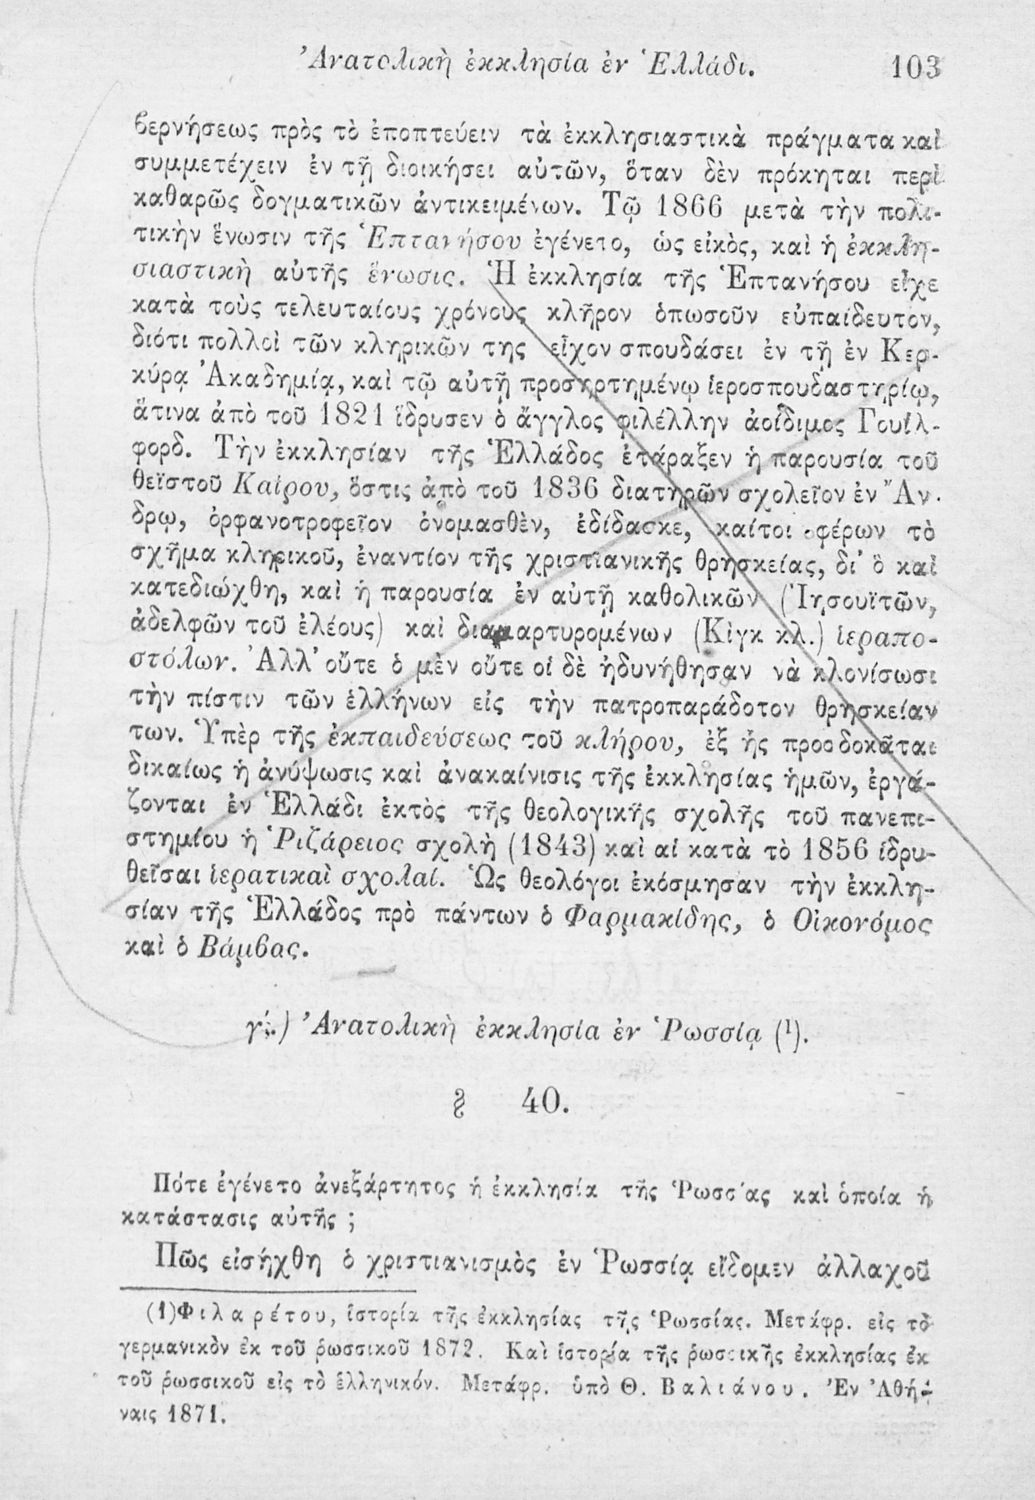 Ἀνατολικὴ ἐκκλησία ἐν Ἑλλάδι. 103
βερνήσεως πρὸς τὸ ἐποπτεύειν τὰ ἐκκλησιαστικὰ πράγματα καὶ
συμμετέχειν ἐν τῇ διοικήσει αὐτῶν, ὅταν δὲν πρόκηται περὶ
καθαρῶς δογματικῶν ἀντικειμένων. Τῷ 1866 μετὰ τὴν πολι-
τικὴν ἕνωσιν τῆς Ἑπτανήσου ἐγένετο, ὡς εἰκὸς, καὶ ἡ ἐκκλη-
σιαστικὴ αὐτῆς ἕνωσις. Ἡ ἐκκλησία τῆς Ἑπτανήσου εἶχε
κατὰ τοὺς τελευταίους χρόνους κλῆρον ὁπωσοῦν εὐπαίδευτον,
διότι πολλοὶ τῶν κληρικῶν της εἶχον σπουδάσει ἐν τῇ ἐν Κερ-
κύρᾳ Ἀκαδημίᾳ, καὶ τῷ αὐτῇ προσηρτημένῳ ἱεροσπουδαστηρίῳ,
ἅτινα ἀπὸ τοῦ 1821 ἵδρυσεν ὁ ἄγγλος φιλέλλην ἀοίδιμος Γουΐλ-
φορδ. Τὴν ἐκκλησίαν τῆς Ἑλλάδος ἐτάραξεν ἡ παρουσία τοῦ
θεϊστοῦ Καΐρου, ὅστις ἀπὸ τοῦ 1836 διατηρῶν σχολεῖον ἐν Ἄν-
δρῳ, ὀρφανοτροφεῖον ὀνομασθὲν, ἐδίδασκε, καίτοι φέρων τὸ
σχῆμα κληρικοῦ, ἐναντίον τῆς χριστιανικῆς θρησκείας, δι' ὃ καὶ
κατεδιώχθη, καὶ ἡ παρουσία ἐν αὐτῇ καθολικῶν (Ἰησουϊτῶν,
ἀδελφῶν τοῦ ἐλέους) καὶ διαμαρτυρομένων (Κὶγκ κλ.) ἱεραπο-
στόλων. Ἀλλ' οὔτε ὁ μὲν οὔτε οἱ δὲ ἠδυνήθησαν νὰ κλονίσωσι
τὴν πίστιν τῶν ἑλλήνων εἰς τὴν πατροπαράδοτον θρησκείαν
των. Ὑπὲρ τῆς ἐκπαιδεύσεως τοῦ κλήρου, ἐξ ἧς προσδοκᾶται
δικαίως ἡ ἀνύψωσις καὶ ἀνακαίνισις τῆς ἐκκλησίας ἡμῶν, ἐργά-
ζονται ἐν Ἑλλάδι ἐκτὸς τῆς θεολογικῆς σχολῆς τοῦ πανεπι-
στημίου ἡ Ῥιζάρειος σχολὴ (1843) καὶ αἱ κατὰ τὸ 1856 ἱδρυ-
θεῖσαι ἱερατικαὶ σχολαί. Ὡς θεολόγοι ἐκόσμησαν τὴν ἐκκλη-
σίαν τῆς Ἑλλάδος πρὸ πάντων ὁ Φαρμακίδης, ὁ Οἰκονόμος
καὶ ὁ Βάμβας.
γ'.) Ἀνατολικὴ ἐκκλησία ἐν Ῥωσσίᾳ (1).
§ 40.
Πότε ἐγένετο ἀνεξάρτητος ἡ ἐκκλησία τῆς Ῥωσσίας καὶ ὁποία ἡ
κατάστασις αὐτῆς ;
Πῶς εἰσήχθη ὁ χριστιανισμὸς ἐν Ῥωσσίᾳ εἴδομεν ἀλλαχοῦ
(1) Φιλαρέτου, ἱστορία τῆς ἐκκλησίας τῆς Ῥωσσίας. Μετάφρ. εἰς τὸ
γερμανικὸν ἐκ τοῦ ῥωσσικοῦ 1872. Καὶ ἱστορία τῆς ῥωσσικῆς ἐκκλησίας ἐκ
τοῦ ῥωσσικοῦ εἰς τὸ ἑλληνικόν. Μετάφρ. ὑπὸ Θ. Βαλιάνου. Ἐν Ἀθή-
ναις 1871.